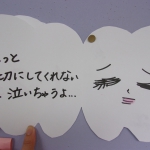 っと
切にしてくれない
、泣いちゃうよ…